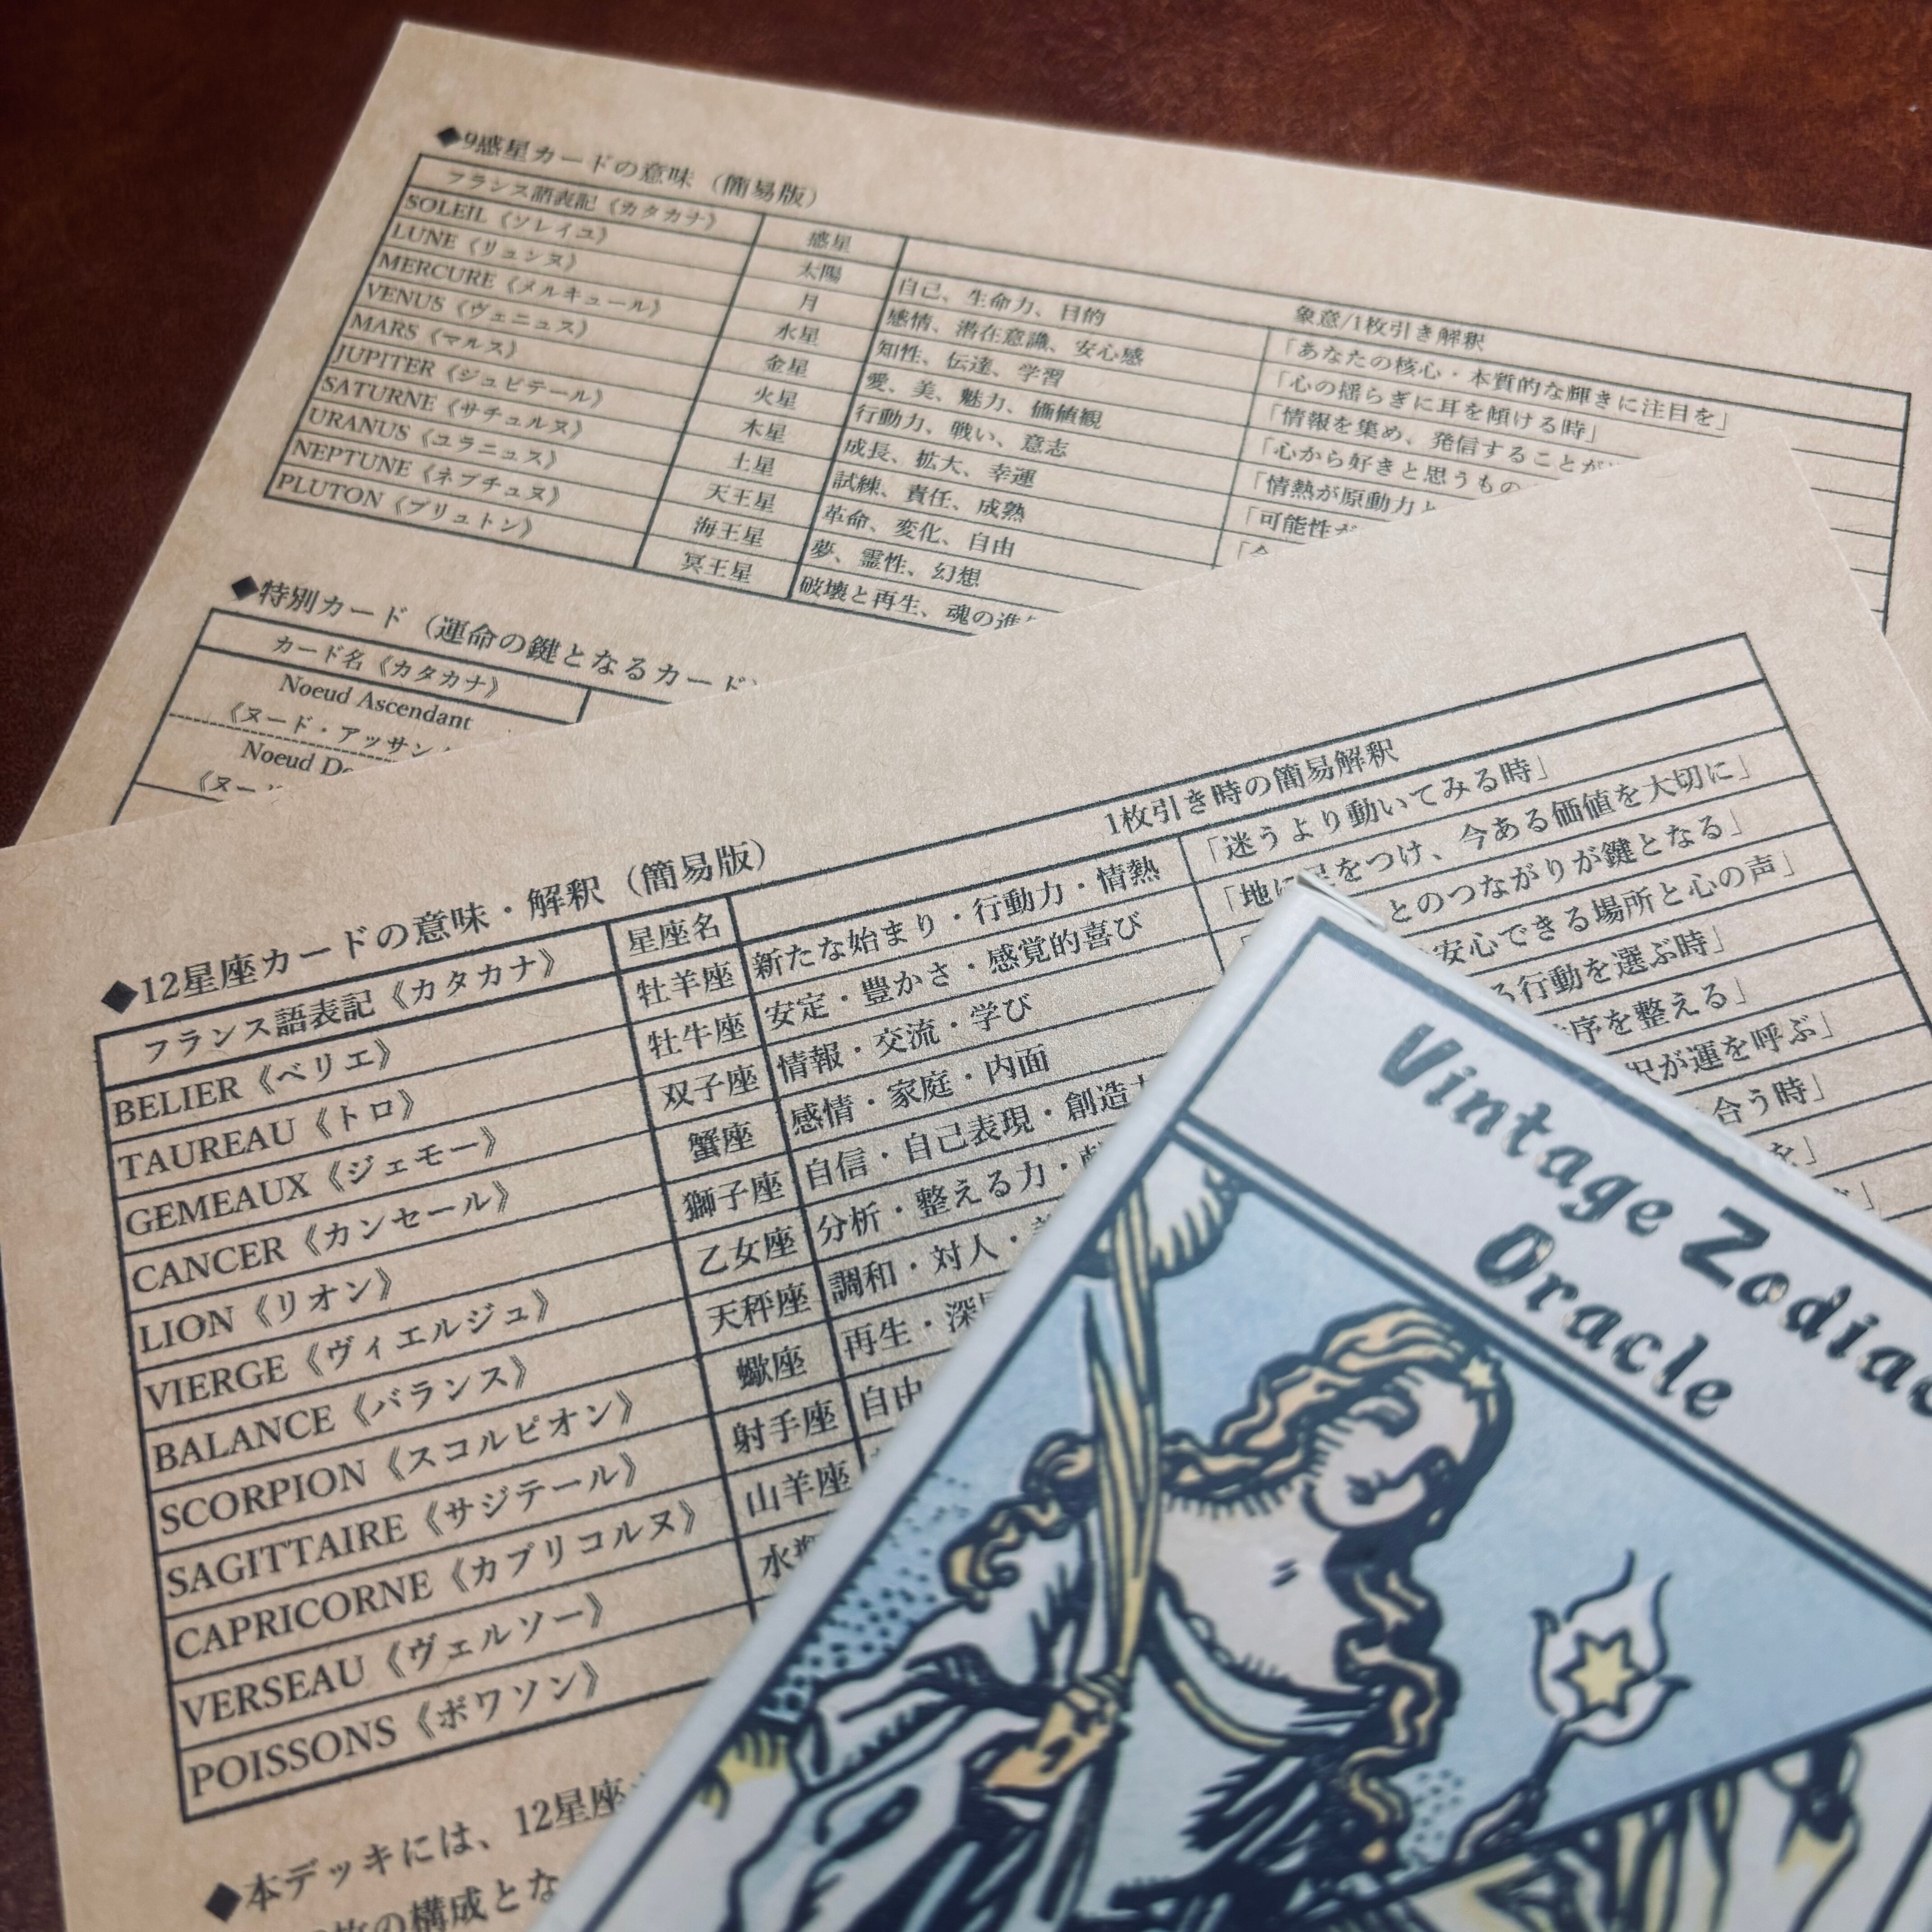 ◆9惑星カードの意味（簡易版）
フランス語表記《カタカナ》 惑星 象意/1枚引き解釈
SOLEIL《ソレイユ》 太陽 自己、生命力、目的 「あなたの核心・本質的な輝きに注目を」
LUNE《リュンヌ》 月 感情、潜在意識、安心感 「心の揺らぎに耳を傾ける時」
MERCURE《メルキュール》 水星 知性、伝達、学習 「情報を集め、発信することが
VENUS《ヴェニュス》 金星 愛、美、魅力、価値観 「心から好きと思うもの
MARS《マルス》 火星 行動力、戦い、意志 「情熱が原動力と
JUPITER《ジュピテール》 木星 成長、拡大、幸運 「可能性が
SATURNE《サチュルヌ》 土星 試練、責任、成熟
URANUS《ユラニュス》 天王星 革命、変化、自由
NEPTUNE《ネプチュヌ》 海王星 夢、霊性、幻想
PLUTON《プリュトン》 冥王星 破壊と再生、魂の進
◆特別カード（運命の鍵となるカード）
カード名《カタカナ》
Noeud Ascendant
《ヌード・アッサン
Noeud De
《ヌード
◆12星座カードの意味・解釈（簡易版）
フランス語表記《カタカナ》 星座名 1枚引き時の簡易解釈
BELIER《ベリエ》 牡羊座 新たな始まり・行動力・情熱 「迷うより動いてみる時」
TAUREAU《トロ》 牡牛座 安定・豊かさ・感覚的喜び 「地に足をつけ、今ある価値を大切に」
GEMEAUX《ジェモー》 双子座 情報・交流・学び とのつながりが鍵となる」
CANCER《カンセール》 蟹座 感情・家庭・内面 安心できる場所と心の声」
LION《リオン》 獅子座 自信・自己表現・創造 る行動を選ぶ時」
VIERGE《ヴィエルジュ》 乙女座 分析・整える力・ 序を整える」
BALANCE《バランス》 天秤座 調和・対人・ 択が運を呼ぶ」
SCORPION《スコルピオン》 蠍座 再生・深 合う時」
SAGITTAIRE《サジテール》 射手座 自由
CAPRICORNE《カプリコルヌ》 山羊座
VERSEAU《ヴェルソー》 水瓶
POISSONS《ポワソン》
◆本デッキには、12星座
の構成とな
Vintage Zodiac
Oracle